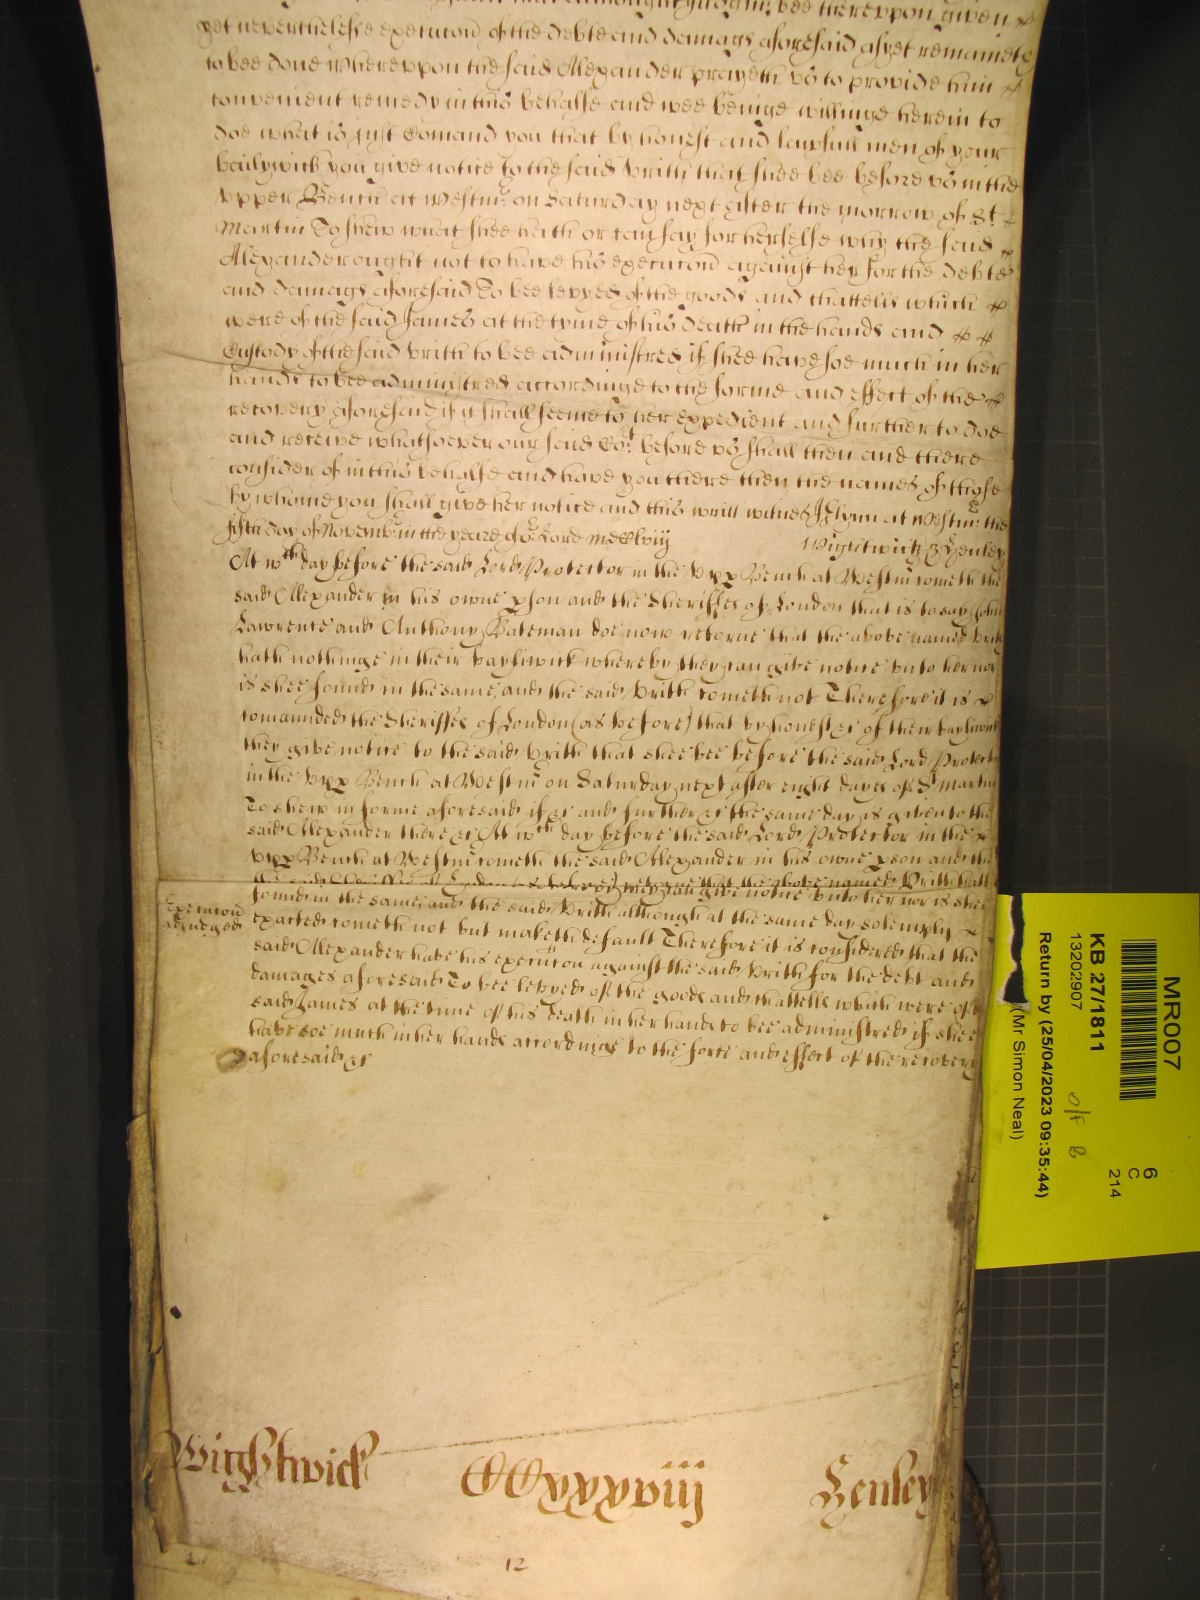 bee thereuppon given
yet neverthelesse execucon of the debte and damags aforesaid as yet remaineth
to bee done whereuppon the said Alexander prayeth us to provide him
convenient remedy in this behalfe and wee beinge willinge herein to
doe what is just Comand you that by honest and lawfull men of your
bailywick you give notice to the said Urith that shee bee before us in the
upper Bench at Westmr on Saturday next after the morrow of St
Martin To shew what shee hath or can say for herselfe why the said
Alexander ought not to have his execucon against her for the debte
and damags aforesaid To bee levyed of the goods and chattells which
were of the said James at the tyme of his death in the hands and
Custody of the said Urith to bee administred if shee have soe much in her
hands to bee administred accordinge to the forme and effect of the
recovery aforesaid if it shall seeme to her expedient and further to doe
and receive whatsoever our said Cort before us shall then and there
consider of in this behalfe and have you there then the names of those
by whome you shall give her notice and this writt witnes J Glynn at Westmr the
fifth day of Novemb in the yeare of or Lord mdclviij Wightwick & Henley
At wch day before the said Lord Protector in the Upp Bench at Westmr cometh the
said Alexander in his owne pson and the Sheriffes of London that is to say John
Lawrence and Anthony Bateman doe now retorne that the above named Urith
hath nothinge in their bayliwick whereby they can give notice unto her nor
is shee found in the same, and the said Urith cometh not Therefore it is
comaunded the Sheriffes of London (as before) that by honest &c of their bayliwick
they give notice to the said Urith that shee bee before the said Lord Protector
in the Upp Bench at Westmr on Saturday next after eight dayes of St Martin
To shew in forme aforesaid if &c and further &c the same day is given to the
said Alexander there &c At wch day before the said Lord Protector in the
Upp Bench at Westmr cometh the said Alexander in his owne pson and the
they can give notice unto her nor is shee
found in the same, and the said Urith although at the same day solemply
Execucon
adjudged
exacted cometh not but maketh default Therefore it is considered that the
said Alexander have his execucon against the said Urith for the debt and
damages aforesaid To bee levyed of the goods and chattells which were of the
said James at the time of his death in her hands to bee administred if shee
have soe much in her hands accordinge to the force and effect of the recovery
aforesaid &c
Wightwick CCxxxviij Henley
12
MR007
KB 27/1811
13202907
Return by (25/04/2023 09:35:44)
(Mr Simon Neal)
6
C
214